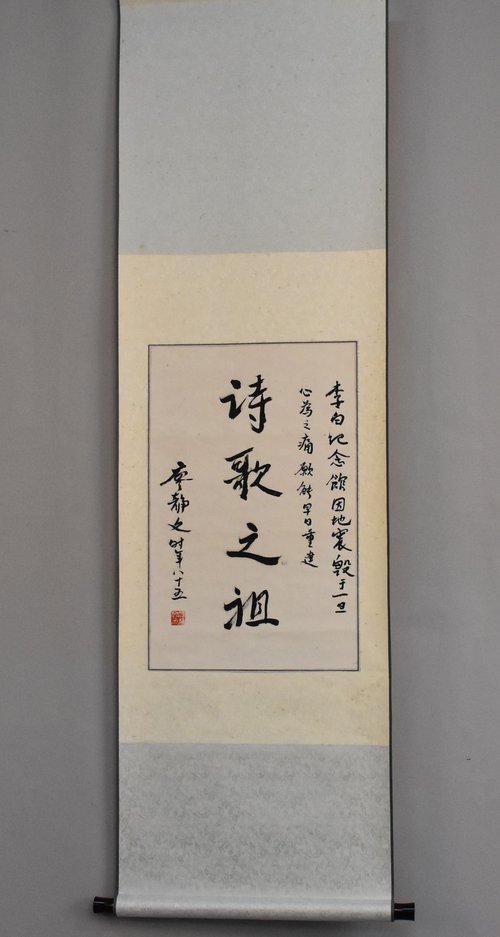 李白纪念馆因地震毁于一旦
心为之痛 愿能早日重建
诗歌之祖
廖静文 时年八十五